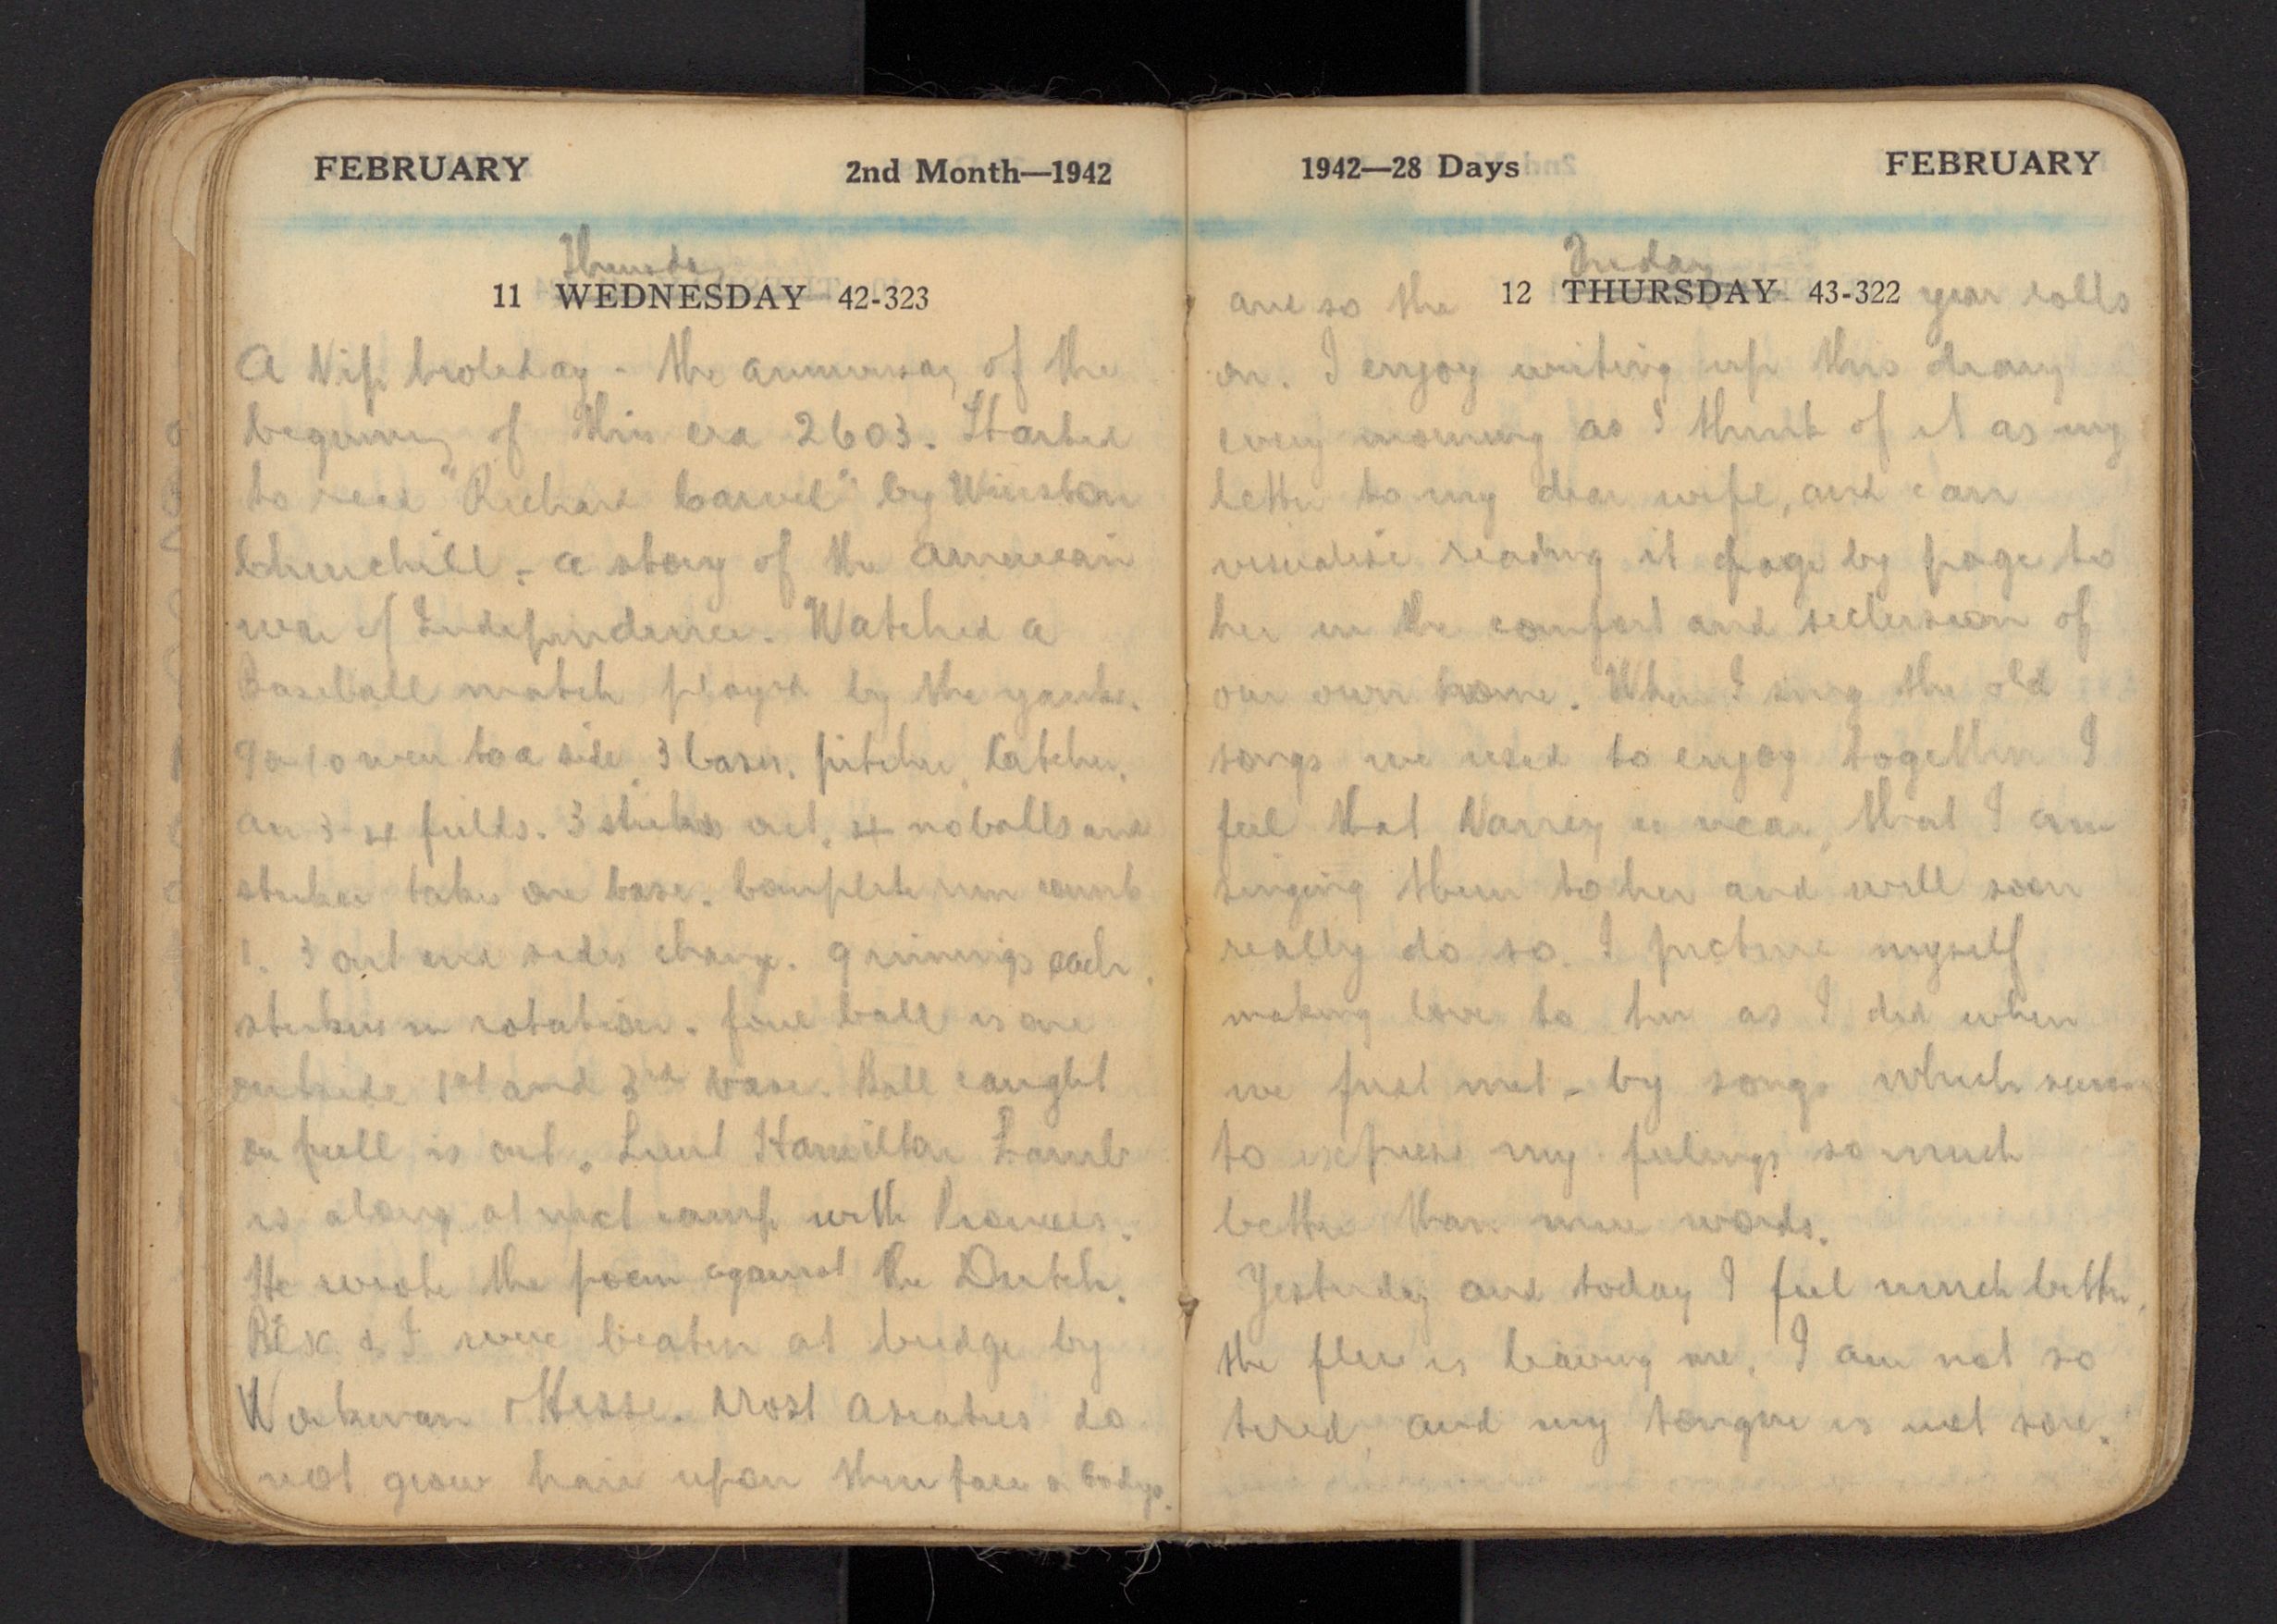 FEBRUARY 2nd Month—1942
Thursday
11 WEDNESDAY 42-323
A Nip holiday - the anniversary of the
beginning of this era 2603. Started
to read "Richard Carvel" by Winston
Churchill - a story of the American
war of Independence. Watched a
Baseball match played by the yanks.
9 or 10 men to a side, 3 bases, pitcher, Catcher,
an 3-4 fields. 3 strikes out, 4 no balls and
striker takes one base. Complete run counts
1. 3 out and sides change. 9 innings each.
strikers in rotation. foul ball is one
outside 1st and 3rd base. Ball caught
on full is out. Lieut Hamilton Lamb
is along at next camp with Pioneers.
He wrote the poem against the Dutch.
Rex & I were beaten at bridge by
Workman & Hesse. Most Asiatics do
not grow hair upon their face or body.
1942—28 Days FEBRUARY
Friday
12 THURSDAY 43-322
are so the year rolls
on. I enjoy writing up this diary
every morning as I think of it as my
letter to my dear wife, and can
visualise reading it page by page to
her in the comfort and seclusion of
our own home. When I sing the old
songs we used to enjoy together I
feel that is near, that I am
singing them to her and will soon
really do so. I picture myself
making love to her as I did when
we first met - by songs which
to express my feelings so much
better than mere words.
Yesterday and today I feel much better,
the flu is leaving me, I am not so
tired, and my tongue is not sore.